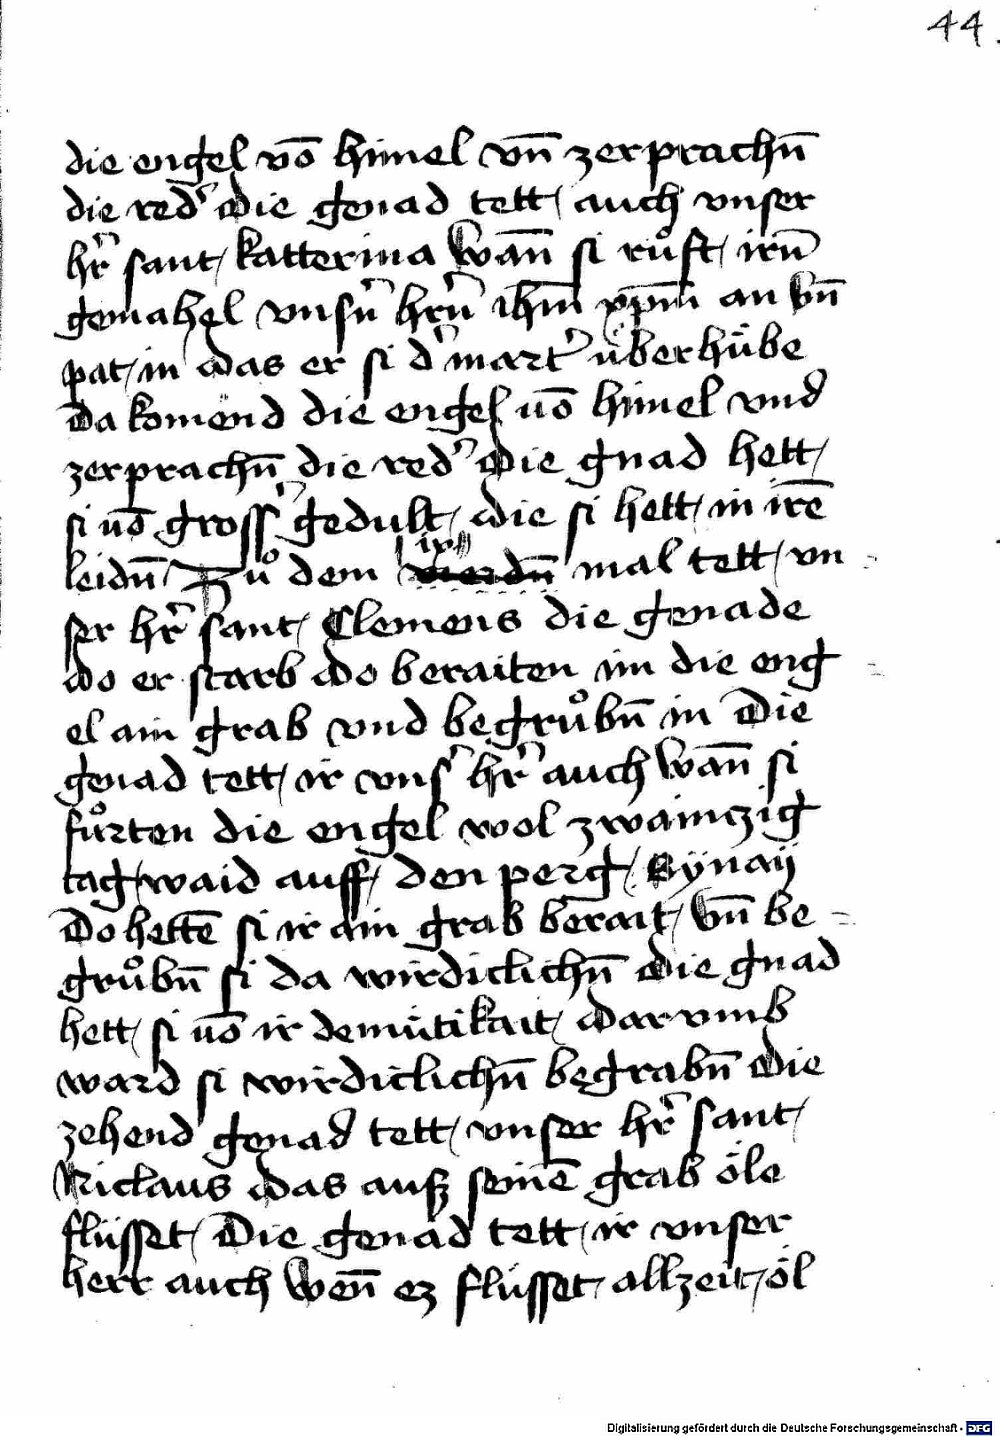 44.
die engel vō himel vn̄ zerprachn̄
die red᾽ die genad tett / auch vnser
hr̄ sant / katterina wan̄ si ruͦft / irn̄
gemahel vnsn̄ hrn̄ ihm̄ xpm̄ an vn̄
pat / in das er si d᾽ mart᾽ überhübe
Da komend die engel uō himel vnd
zerprachn̄ die red᾽ die gnad hett /
si uō gross᾽ gedult / die si hett / in irē
leidn̄ / Zuͦ dem ix mal tett / vn
ser hr̄ sant / Clemens die genade
do er starb do beraiten im die eng
el ain grab vnd begruͦbn̄ in Die
genad tett / ir vns᾽ hr̄ auch wan̄ si
fuͦrten die engel wol zwainczig
tag / waid auff / den perg / Synaÿ
Do hettē si ir ain grab berait / vn̄ be
gruͦbn̄ si da wirdiclichn̄ die gnad
hett / si uō ir demütikait / darvmb
ward si wirdiclichn̄ begrabn̄ die
zehend genad tett / vnser hr̄ sant /
Niclaus das auß seinē grab öle
flüsset / Die genad tett / ir vnser
herr auch wen̄ ez flüsset / allzeit / öl
Digitalisierung gefördert durch die Deutsche Forschungsgemeinschaft - DFG